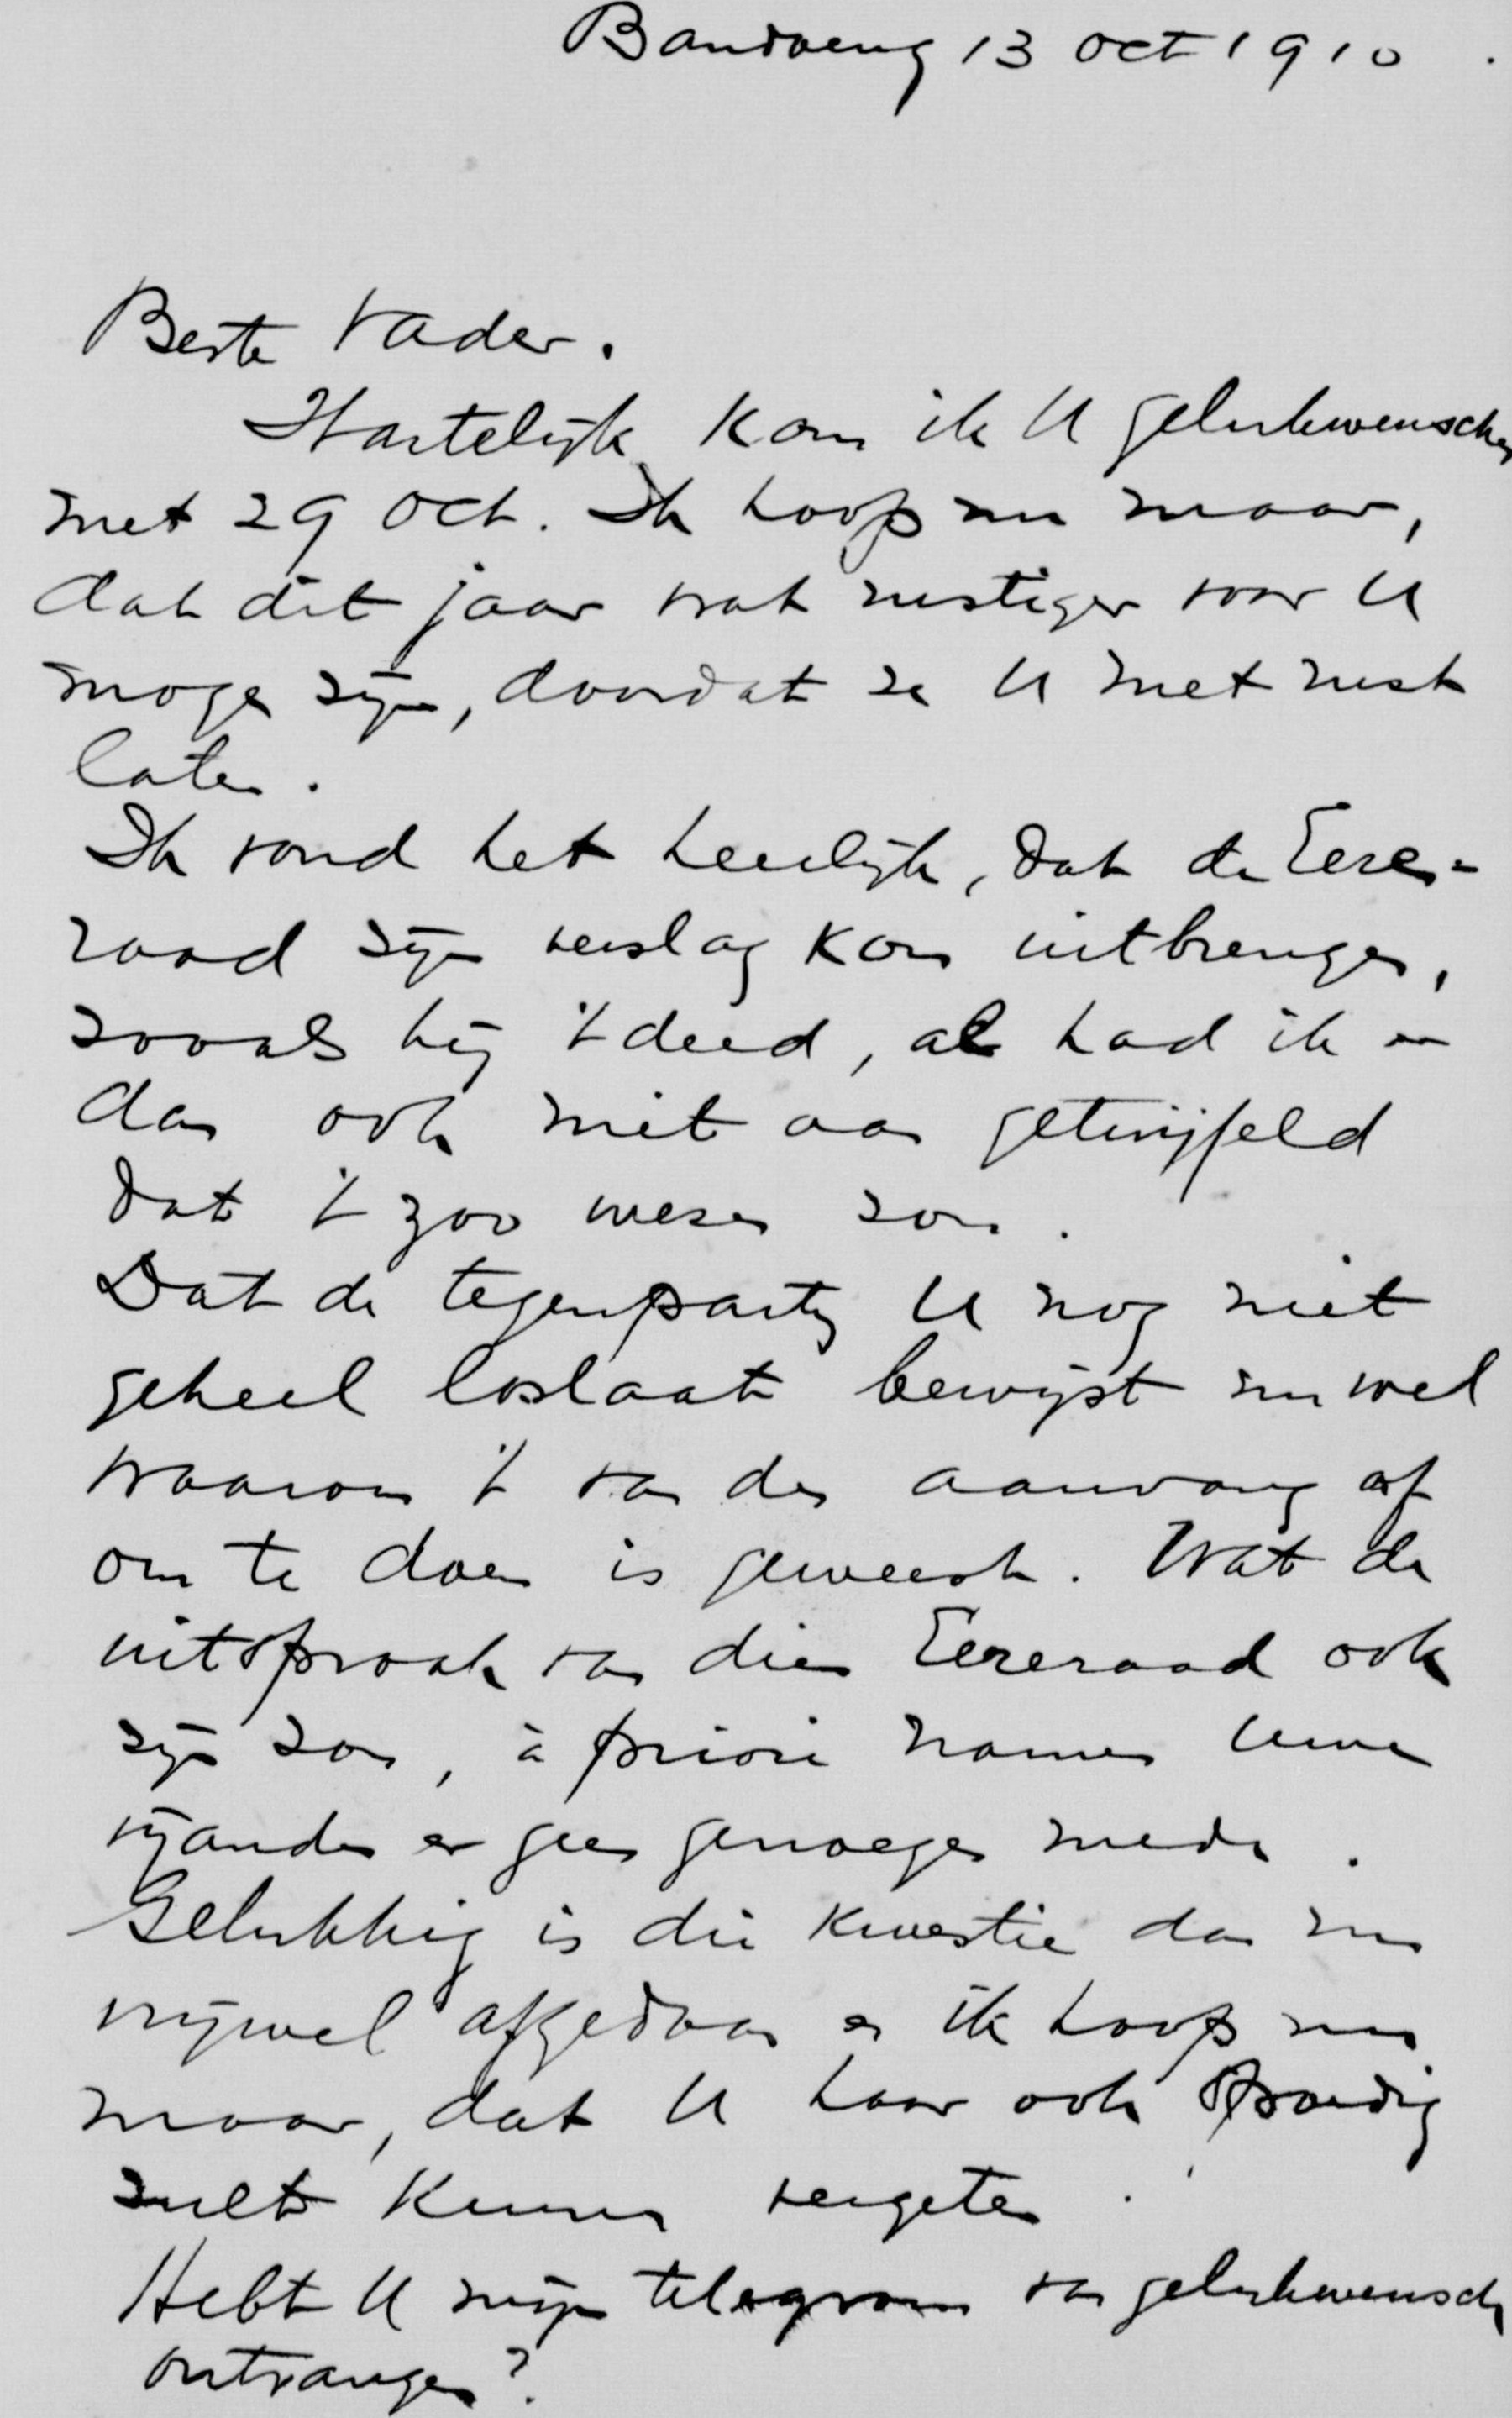 Bandoeng 13 Oct 1910.
Beste Vader.
Hartelijk kom ik U gelukwenschen
met 29 Oct. Ik hoop nu maar,
dat dit jaar wat rustiger voor U
moge zijn, doordat ze U met rust
laten.
Ik vond het heerlijk, dat de Eere-
raad zijn verslag kon uitbrengen,
zooals hij 't deed, al had ik er
dan ook niet aan getwijfeld
dat 't zoo wezen zou.
Dat de tegenpartij U nog niet
geheel loslaat bewijst nu wel
waarom 't van den aanvang af
om te doen is geweest. Wat de
uitspraak van dien Eereraad ook
zijn zou, à priori namen Uwe
vijanden er geen genoegen mede.
Gelukkig is die kwestie dan nu
vrijwel afgedaan en ik hoop nu
maar, dat U haar ook spoedig
zult kunnen vergeten.
Hebt U mijn telegram van gelukwensch
ontvangen?